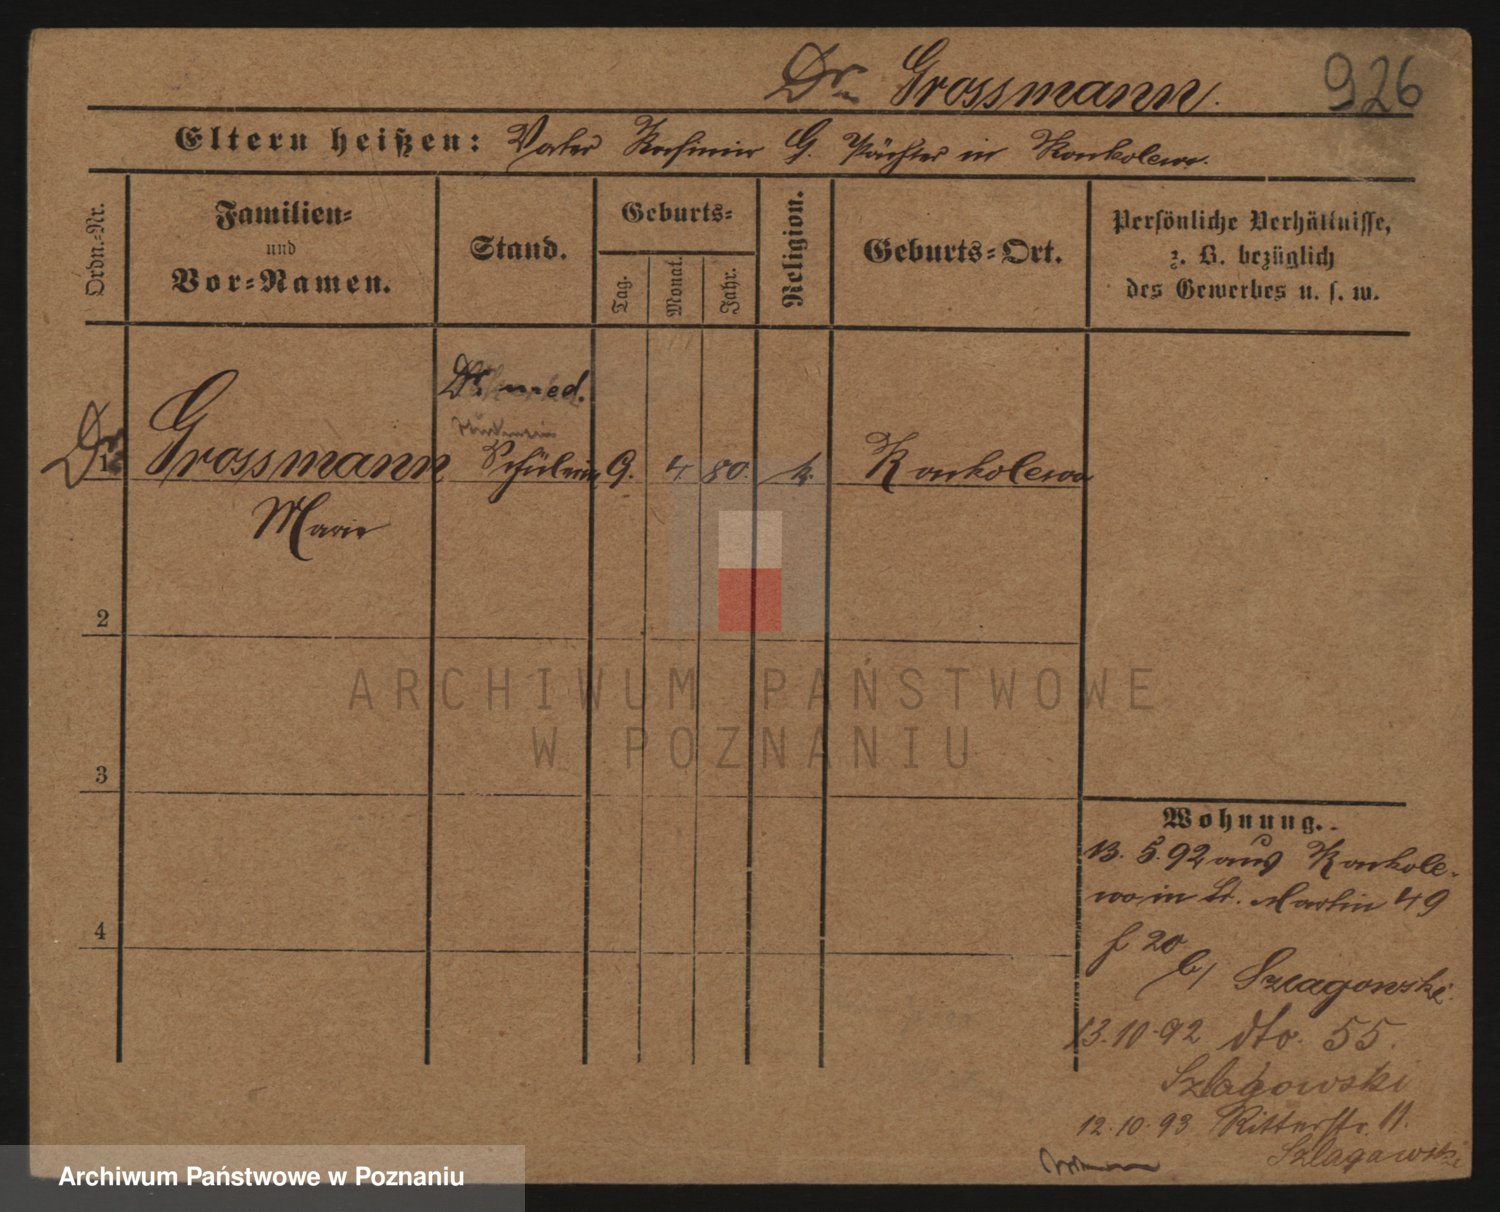 Dr. Grossmann. 926
Eltern heißen: Vater Kasimir G. Pächter in Konkolewo.
Ordn.-Nr.
Familien-
und
Vor-Namen.
Stand.
Geburts-
Tag.
Monat.
Jahr.
Religion.
Geburts-Ort.
Persönliche Verhältnisse,
z. B. bezüglich
des Gewerbes u. s. w.
Dr. med.
Dr. 1 Grossmann Schülerin 9. 4 80. k. Konkolewo
Marie
2
3
4
Wohnung.
13. 5. 92 aus Konkole-
wo in St. Martin 49
f 20
b/ Szlagowski.
13.10.92 dto. 55.
Szlagowski
12.10.93 Ritterstr. 11.
Szlagowski
ARCHIWUM PAŃSTWOWE
W POZNANIU
Archiwum Państwowe w Poznaniu